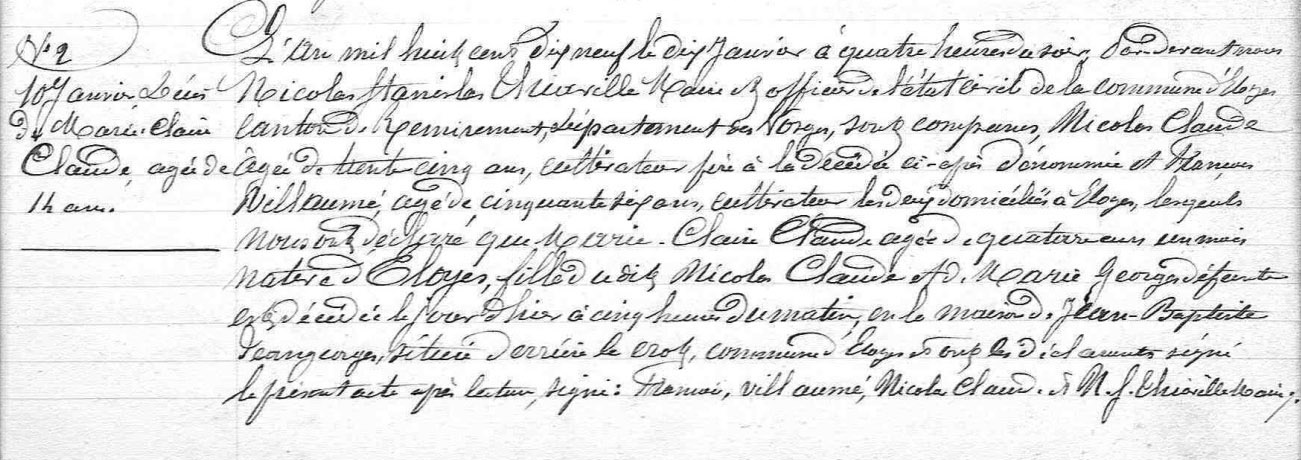 N° 2
10 Janvier Décés
de Marie Claire
Claude, agée de
14 ans.
L'an mil huit cent dix neuf le dix Janvier à quatre heures du soir, Par devant nous
Nicolas Stanislas Thiaville Maire et officier de l'état civil de la commune d'Eloyes
canton de Remiremont, département des Vosges, sont comparus, Nicolas Claude
âgé de trente cinq ans, cultivateur père à la décédée ci-après dénommée et François
Villaumé, agé de cinquante six ans, cultivateur les deux domiciliés à Eloyes, lesquels
nous ont déclaré que Marie-Claire Claude agée de quatorze ans un mois
native d'Eloyes, fille dudit Nicolas Claude et de Marie Georges défunte
est décédée le jour d'hier à cinq heures du matin, en la maison de Jean-Baptiste
Jeangeorges, située derrière le crot, commune d'Eloyes et ont les déclarants signé
le présent acte après lecture, signé: François, villaumé, Nicolas Claude. & N. S. Thiaville Maire.